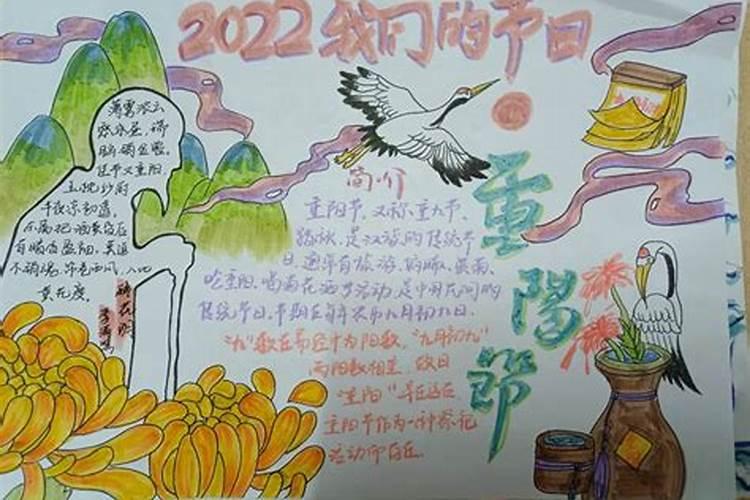 2022我们的节日
薄雾浓云
愁永昼，瑞
脑销金兽。
佳节又重阳，
玉枕纱厨
半夜凉初透。
东篱把酒黄昏后
有暗香盈袖，莫道
不销魂，帘卷西风，人比
黄花瘦。
醉花阴
李清照
简介
重阳节，又称重九节、
踏秋，是汉族的传统节
日。
吃重阳、喝菊花酒等活动，是中国民间的
传统节日，节期在每年农历九月初九日。
"九"数在易经中为阳数，"九月初九"
两阳数相重，故曰
"重阳"
重阳节作为一种祭祀
活动而存在。
重陽節